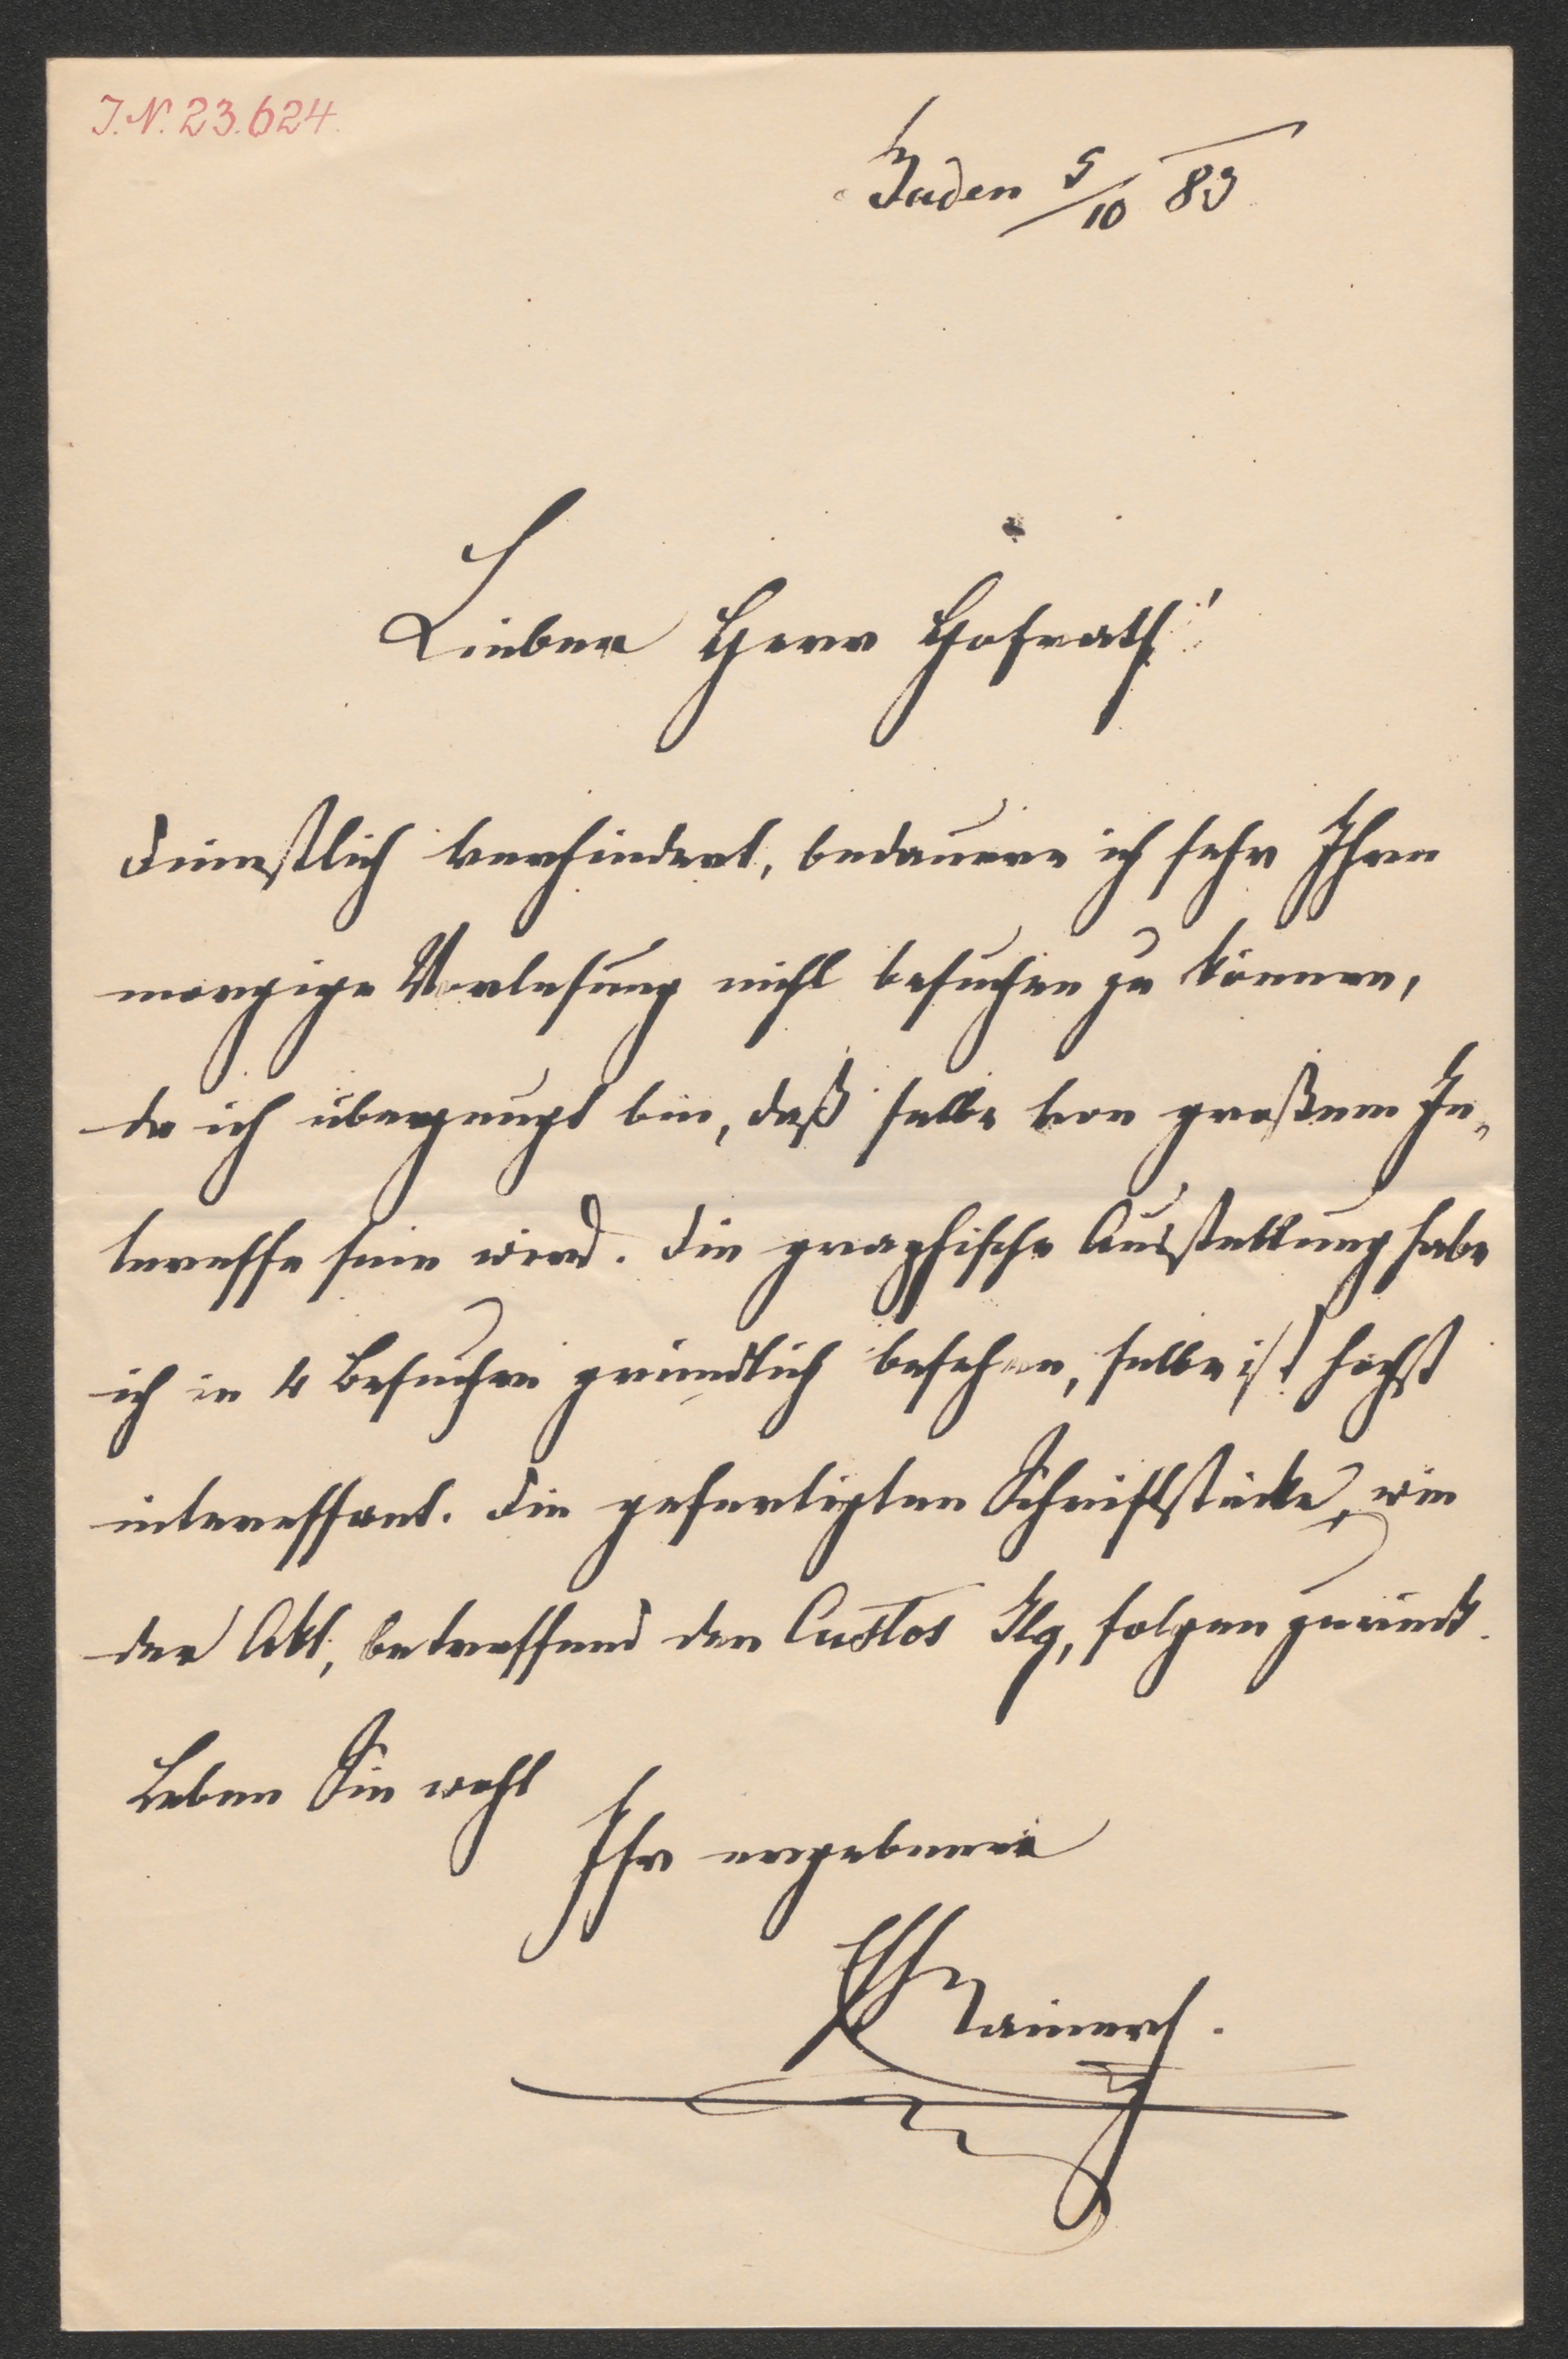 J.N. 23.624.
Baden 5/10 83
Lieber Herr Hofrath!
Dienstlich verhindert, bedauere ich sehr Ihre
morgige Vorlesung nicht besuchen zu können,
da ich überzeugt bin, daß selbe von großem In„
teresse sein wird. Die graphische Ausstellung habe
ich in 4 Besuchen gründlich besehen, selbe ist höchst
interessant. Die gefertigten Schriftstücke, wie
der Akt, betreffend den Custos Ilg, folgen zurück.
Leben Sie wohl
Ihr ergebener
EH Rainer